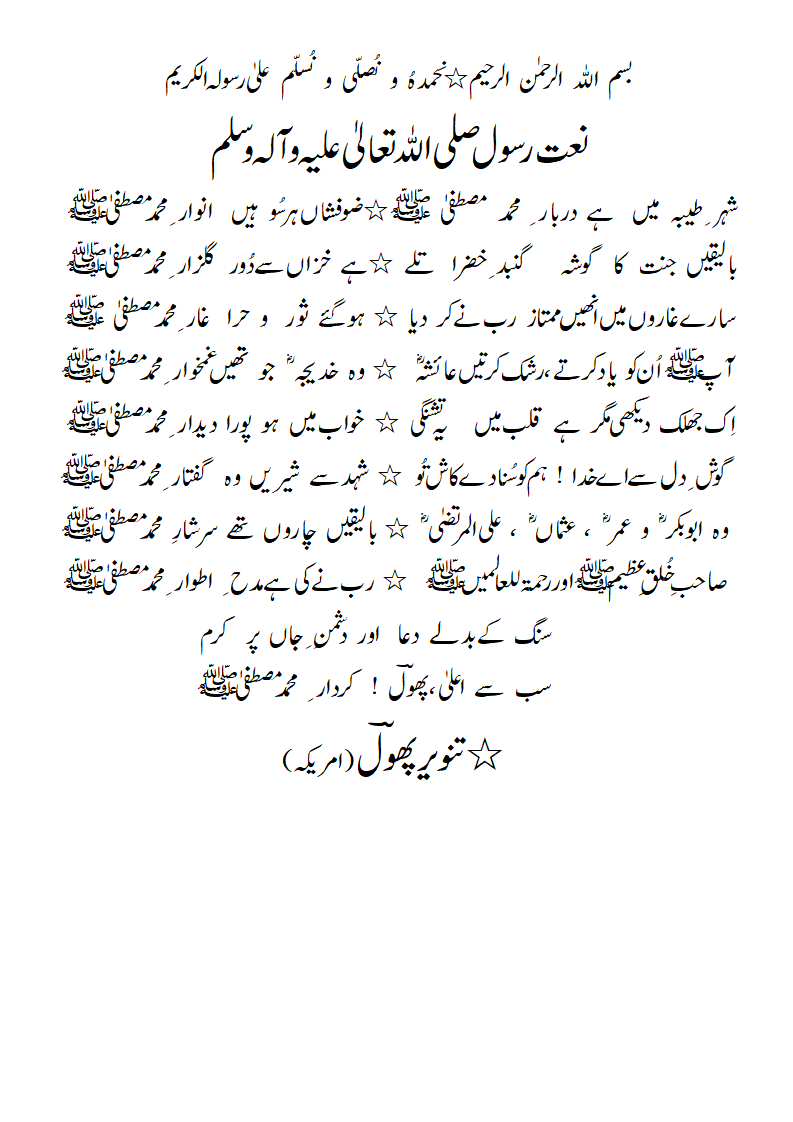 بسم اللہ الرحمٰن الرحیم☆نحمدہٗ و نُصلّی و نُسلّم علیٰ رسولہ الکریم
نعت رسول صلی اللہ تعالیٰ علیہ وآلہ وسلم
شہرِ طیبہ میں ہے دربارِ محمد مصطفیٰ ﷺ☆ضوفشاں ہر سُو ہیں انوارِ محمد مصطفیٰ ﷺ
بالیقیں جنت کا گوشہ گنبدِ خضرا تلے ☆ہے خزاں سے دُور گلزارِ محمد مصطفیٰ ﷺ
سارے غاروں میں انھیں ممتاز رب نے کر دیا ☆ ہو گئے ثور و حرا غارِ محمد مصطفیٰ ﷺ
آپ ﷺ اُن کو یاد کرتے ، رشک کرتیں عائشہؓ ☆ وہ خدیجہؓ جو تھیں غمخوارِ محمد مصطفیٰ ﷺ
اِک جھلک دیکھی مگر ہے قلب میں یہ تشنگی ☆ خواب میں ہو پورا دیدارِ محمد مصطفیٰ ﷺ
گوشِ دل سے اے خدا ! ہم کو سُنا دے کاش تُو ☆ شہد سے شیریں وہ گفتارِ محمد مصطفیٰ ﷺ
وہ ابوبکرؓ و عمرؓ ، عثماںؓ ، علی المرتضیٰؓ ☆ بالیقیں چاروں تھے سرشارِ محمد مصطفیٰ ﷺ
صاحبِ خُلقِ عظیم ﷺ اور رحمۃ للعالمیں ﷺ ☆ رب نے کی ہے مدحِ اطوارِ محمد مصطفیٰ ﷺ
سنگ کے بدلے دعا اور دشمنِ جاں پر کرم
سب سے اعلیٰ ، پھولؔ ! کردارِ محمد مصطفیٰ ﷺ
☆ تنویر پھولؔ (امریکہ)